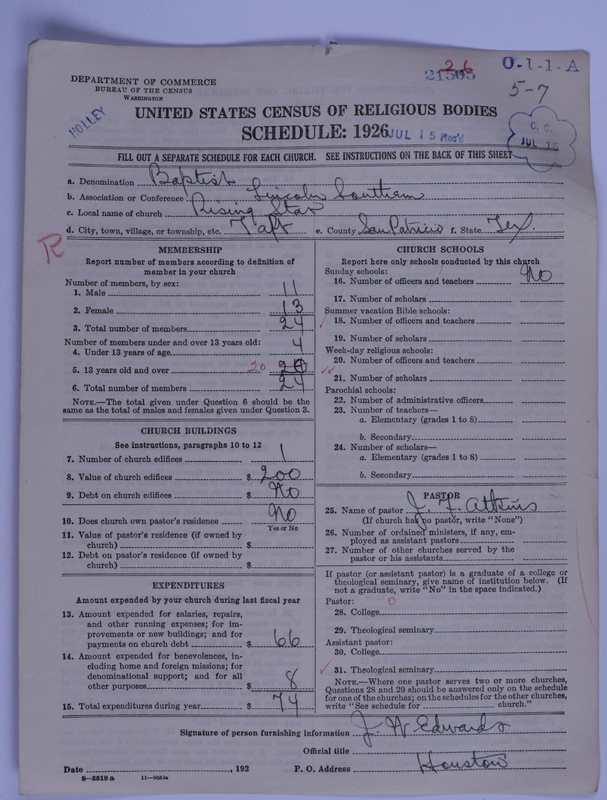 DEPARTMENT OF COMMERCE
BUREAU OF THE CENSUS
WASHINGTON
26
21505
O-1-1-A
5-7
HOLLEY
UNITED STATES CENSUS OF RELIGIOUS BODIES
SCHEDULE: 1926
JUL 15 Rec'd
C. C.
JUL 16
FILL OUT A SEPARATE SCHEDULE FOR EACH CHURCH. SEE INSTRUCTIONS ON THE BACK OF THIS SHEET
a. Denomination Baptist
b. Association or Conference Lincoln Southern
c. Local name of church Rising Star
d. City, town, village, or township, etc. Taft e. County San Patricio f. State Tex.
R
MEMBERSHIP
Report number of members according to definition of
member in your church
Number of members, by sex:
1. Male 11
2. Female 13
3. Total number of members 24
Number of members under and over 13 years old:
4. Under 13 years of age 4
5. 13 years old and over 20 20
6. Total number of members 24
NOTE.—The total given under Question 6 should be the
same as the total of males and females given under Question 3.
CHURCH BUILDINGS
See instructions, paragraphs 10 to 12
7. Number of church edifices 1
8. Value of church edifices $ 200
9. Debt on church edifices $ No
10. Does church own pastor's residence No
Yes or No
11. Value of pastor's residence (if owned by
church) $
12. Debt on pastor's residence (if owned by
church) $
EXPENDITURES
Amount expended by your church during last fiscal year
13. Amount expended for salaries, repairs,
and other running expenses; for im-
provements or new buildings; and for
payments on church debt $ 66
14. Amount expended for benevolences, in-
cluding home and foreign missions; for
denominational support; and for all
other purposes $ 8
15. Total expenditures during year $ 74
CHURCH SCHOOLS
Report here only schools conducted by this church
Sunday schools:
16. Number of officers and teachers No
17. Number of scholars
Summer vacation Bible schools:
18. Number of officers and teachers
19. Number of scholars
Week-day religious schools:
20. Number of officers and teachers
21. Number of scholars
Parochial schools:
22. Number of administrative officers
23. Number of teachers—
a. Elementary (grades 1 to 8)
b. Secondary
24. Number of scholars—
a. Elementary (grades 1 to 8)
b. Secondary
PASTOR
25. Name of pastor J. F. Atkins
(If church has no pastor, write "None")
26. Number of ordained ministers, if any, em-
ployed as assistant pastors
27. Number of other churches served by the
pastor or his assistants
If pastor (or assistant pastor) is a graduate of a college or
theological seminary, give name of institution below. (If
not a graduate, write "No" in the space indicated.)
Pastor:
28. College
29. Theological seminary
Assistant pastor:
30. College
31. Theological seminary
NOTE.—Where one pastor serves two or more churches,
Questions 28 and 29 should be answered only on the schedule
for one of the churches; on the schedules for the other churches,
write "See schedule for church."
Signature of person furnishing information J. W. Edwards
Official title
Date , 192 P. O. Address Houston
8—5518a 11—9054a